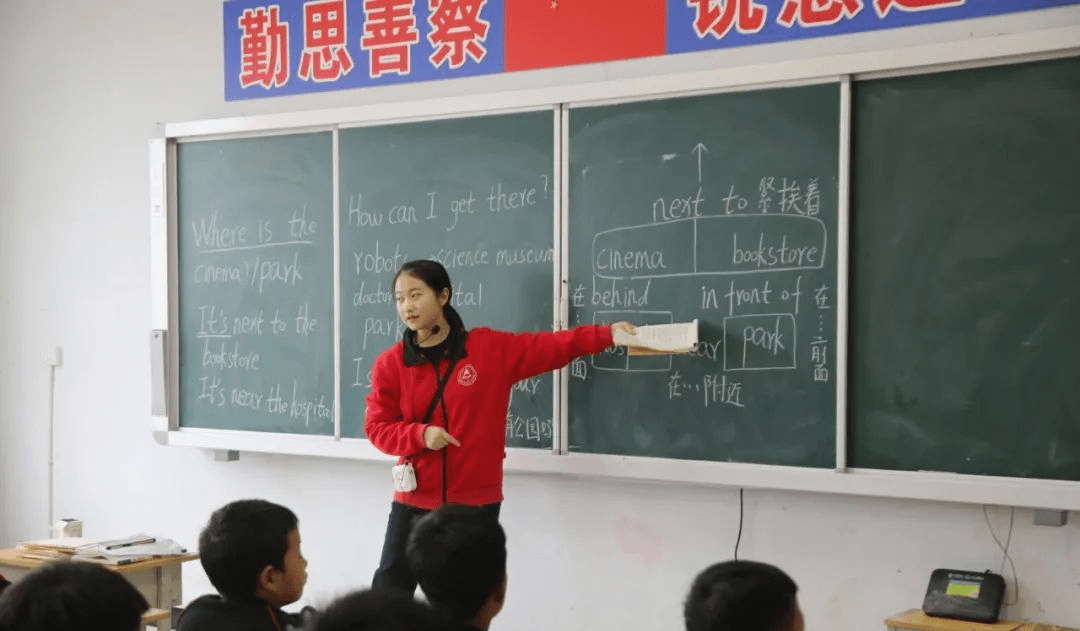 勤思善察
锐意进
Where is the
cinema?/park
It's next to the
bookstore
It's near the hospital
How can I get there?
robot science museum
doctor
par
Is
next to 紧挨着
cinema
bookstore
behind
in front of
在…前面
park
在…附近